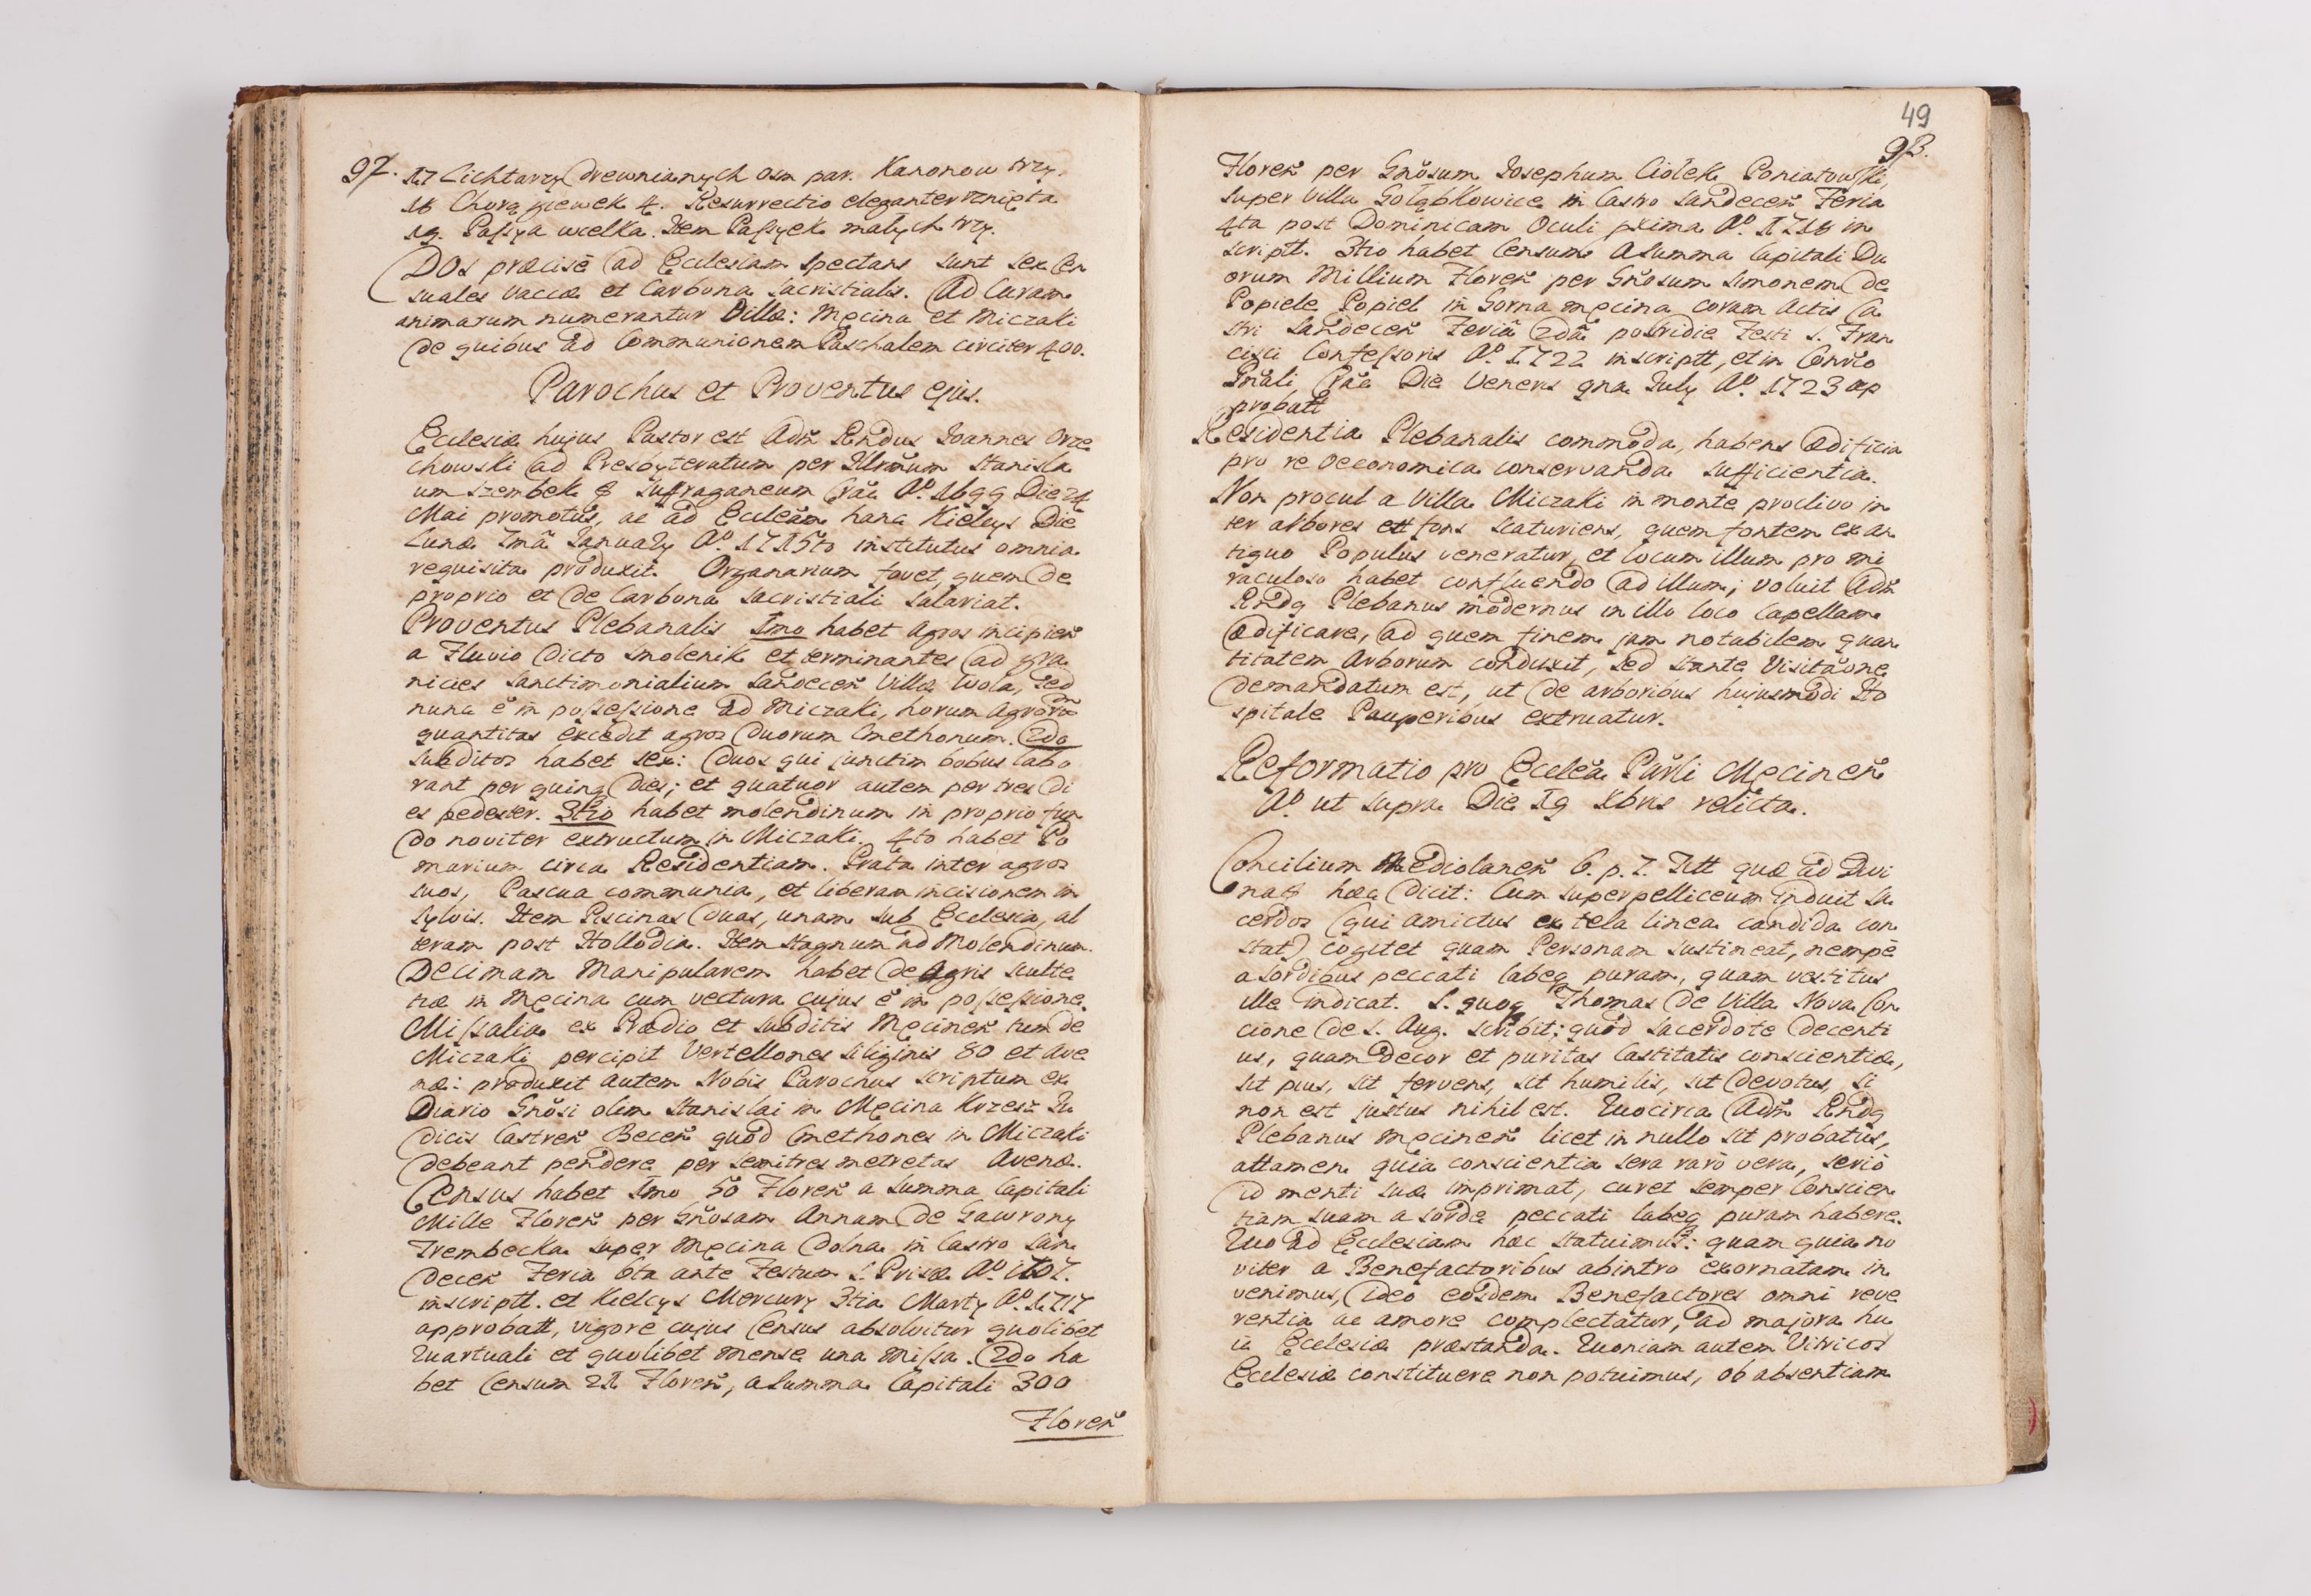 97.
17 Lichtarzy drewnianych osm par. Kanonow trzy.
18 Chorągiewek 4. Resurrectio eleganter rznięta
19. Passya wielka. Item Passyek małych trzy.
Dos præcisè ad Ecclesiam spectans sunt sex Cen
suales vaccæ et Carbona Sacristialis. Ad Curam
animarum numerantur Villæ: Męcina et Miczaki
de quibus ad Communionem Paschalem circiter 400.
Parochus et Proventus ejus.
Ecclesiæ hujus Pastor est Adm̃ Rndus Joannes Orze
chowski ad Presbyteratum per Illrm̃um Stanisla
um Szembek Suffraganeum Crãc A͞o. 1699 Die 24
Mai promotus, ac ad Eccleãm hanc Kielcys Die
Lunæ Imâ January A͞o. 1715to institutus omnia
requisita produxit. Organarium fovet, quem de
proprio et de Carbona Sacristiali salariat.
Proventus Plebanalis Imo habet Agros incipien̄
a Fluvio dicto Smolenik et terminantes ad gra
nicies Sanctimonialium Sandecen̄ Villæ Wola, sed
nunc ẽ in possessione ad Miczaki, horum Agroru͞m
quantitas excedit agros duorum Cmethonum. 2do
Subditos habet sex: duos qui junctim bobus labo
rant per quinq dies; et quatuor autem per tres di
es pedester. 3tio habet molendinum in proprio fun
do noviter extructum in Miczaki. 4to habet Po
marium circa Residentiam. Prata inter agros
suos, Pascua communia, et liberam incisionem in
Sylvis. Item Piscinas duas, unam sub Ecclesia, al
teram post Hollodia. Item stagnum ad Molendinum.
Decimam Manipularem habet de Agris Sculte
tiæ in Męcina cum vectura cujus ẽ in possessione.
Missalia ex Prædio et Subditis Męcinen̄ tum de
Miczaki percipit Vertellones siliginis 80 et Ave
næ: produxit autem Nobis Parochus scriptum ex
Diario Gnõsi olim Stanislai in Męcina Krzesz Ju
dicis Castren̄ Becen̄ quòd Cmethones in Miczaki
debeant pendere per semitres metretas Avenæ.
Census habet Imo 50 Floren̄ a summa Capitali
Mille Floren̄ per Gnõsam Annam de Gawrony
Trembecka super Męcina dolna in Castro San
decen̄ Feria 6ta ante Festum S. Priscæ A͞o. 1707.
inscriptt. et Kielcys Mercury 3tia Marty A͞o. 1717
approbatt, vigore cujus Census absolvitur quolibet
Quartuali et quolibet mense una Missa. 2do ha
bet Censum 21 Floren̄, a Summa Capitali 300
Floren̄
49
93.
Floren̄ per Gnõsum Josephum Ciołek Poniatowski,
super Villa Gołąbkowice in Castro Sandecen̄ Feria
4ta post Dominicam Oculi pxima A͞o. 1718 in
scriptt. 3tio habet Censum a Summa Capitali Du
orum Millium Floren̄ per Gnõsum Simonem de
Popiele Popiel in Gorna Męcina coram Actis Ca
stri Sandecen̄ Feriâ 2dâ postridie Festi S. Fran
cisci Confessoris A͞o. 1722 inscriptt, et in Consrio
Gnãli Crãc Die Veneris 9na July A͞o. 1723 ap
probatt
Residentia Plebanalis commoda, habens ædificia
pro re Oeconomica conservanda sufficientia.
Non procul a Villa Miczaki in monte proclivo in
ter arbores est fons scaturiens, quem fontem ex an
tiquo Populus veneratur, et locum illum pro mi
raculoso habet confluendo ad illum; voluit Adm̃
Rndq Plebanus modernus in illo loco Capellam
ædificare, ad quem finem jam notabilem quan
titatem Arborum conduxit, sed stante Visitãone
demandatum est, ut de arboribus hujusmodi Ho
spitale Pauperibus extruatur.
Reformatio pro Ecclẽa Parli Męcinen̄
A͞o. ut supra Die 19 Xbris relicta.
Concilium Mediolanen̄ 6. p. 7. Titt quæ ad Divi
na hæc dicit: Cum superpelliceum induit Sa
cerdos (qui amictus ex tela linea candida con
stat) cogitet quam Personam sustineat, nempè
a sordibus peccati labeq puram, quam vestitus
ille indicat. S. quoq Thomas de Villa Nova Con
cione de S. Aug. scribit; quòd Sacerdote decenti
us, quam decor et puritas Castitatis conscientiæ,
sit pius, sit fervens, sit humilis, sit devotus, si
non est justus nihil est. Quocirca Adm̃ Rndq
Plebanus Męcinen̄ licet in nullo sit probatus,
attamen quia conscientia sera rarò vera, seriò
id menti suæ imprimat, curet semper Conscien
tiam suam a sorde peccati labeq puram habere.
Quo ad Ecclesiam hæc statuimus: quam quia no
viter a Benefactoribus abintra exornatam in
venimus, ideo eosdem Benefactores omni reve
rentia ac amore complectatur, ad majora hu
ic Ecclesiæ præstanda. Quoniam autem Vitricos
Ecclesiæ constituere non potuimus, ob absentiam